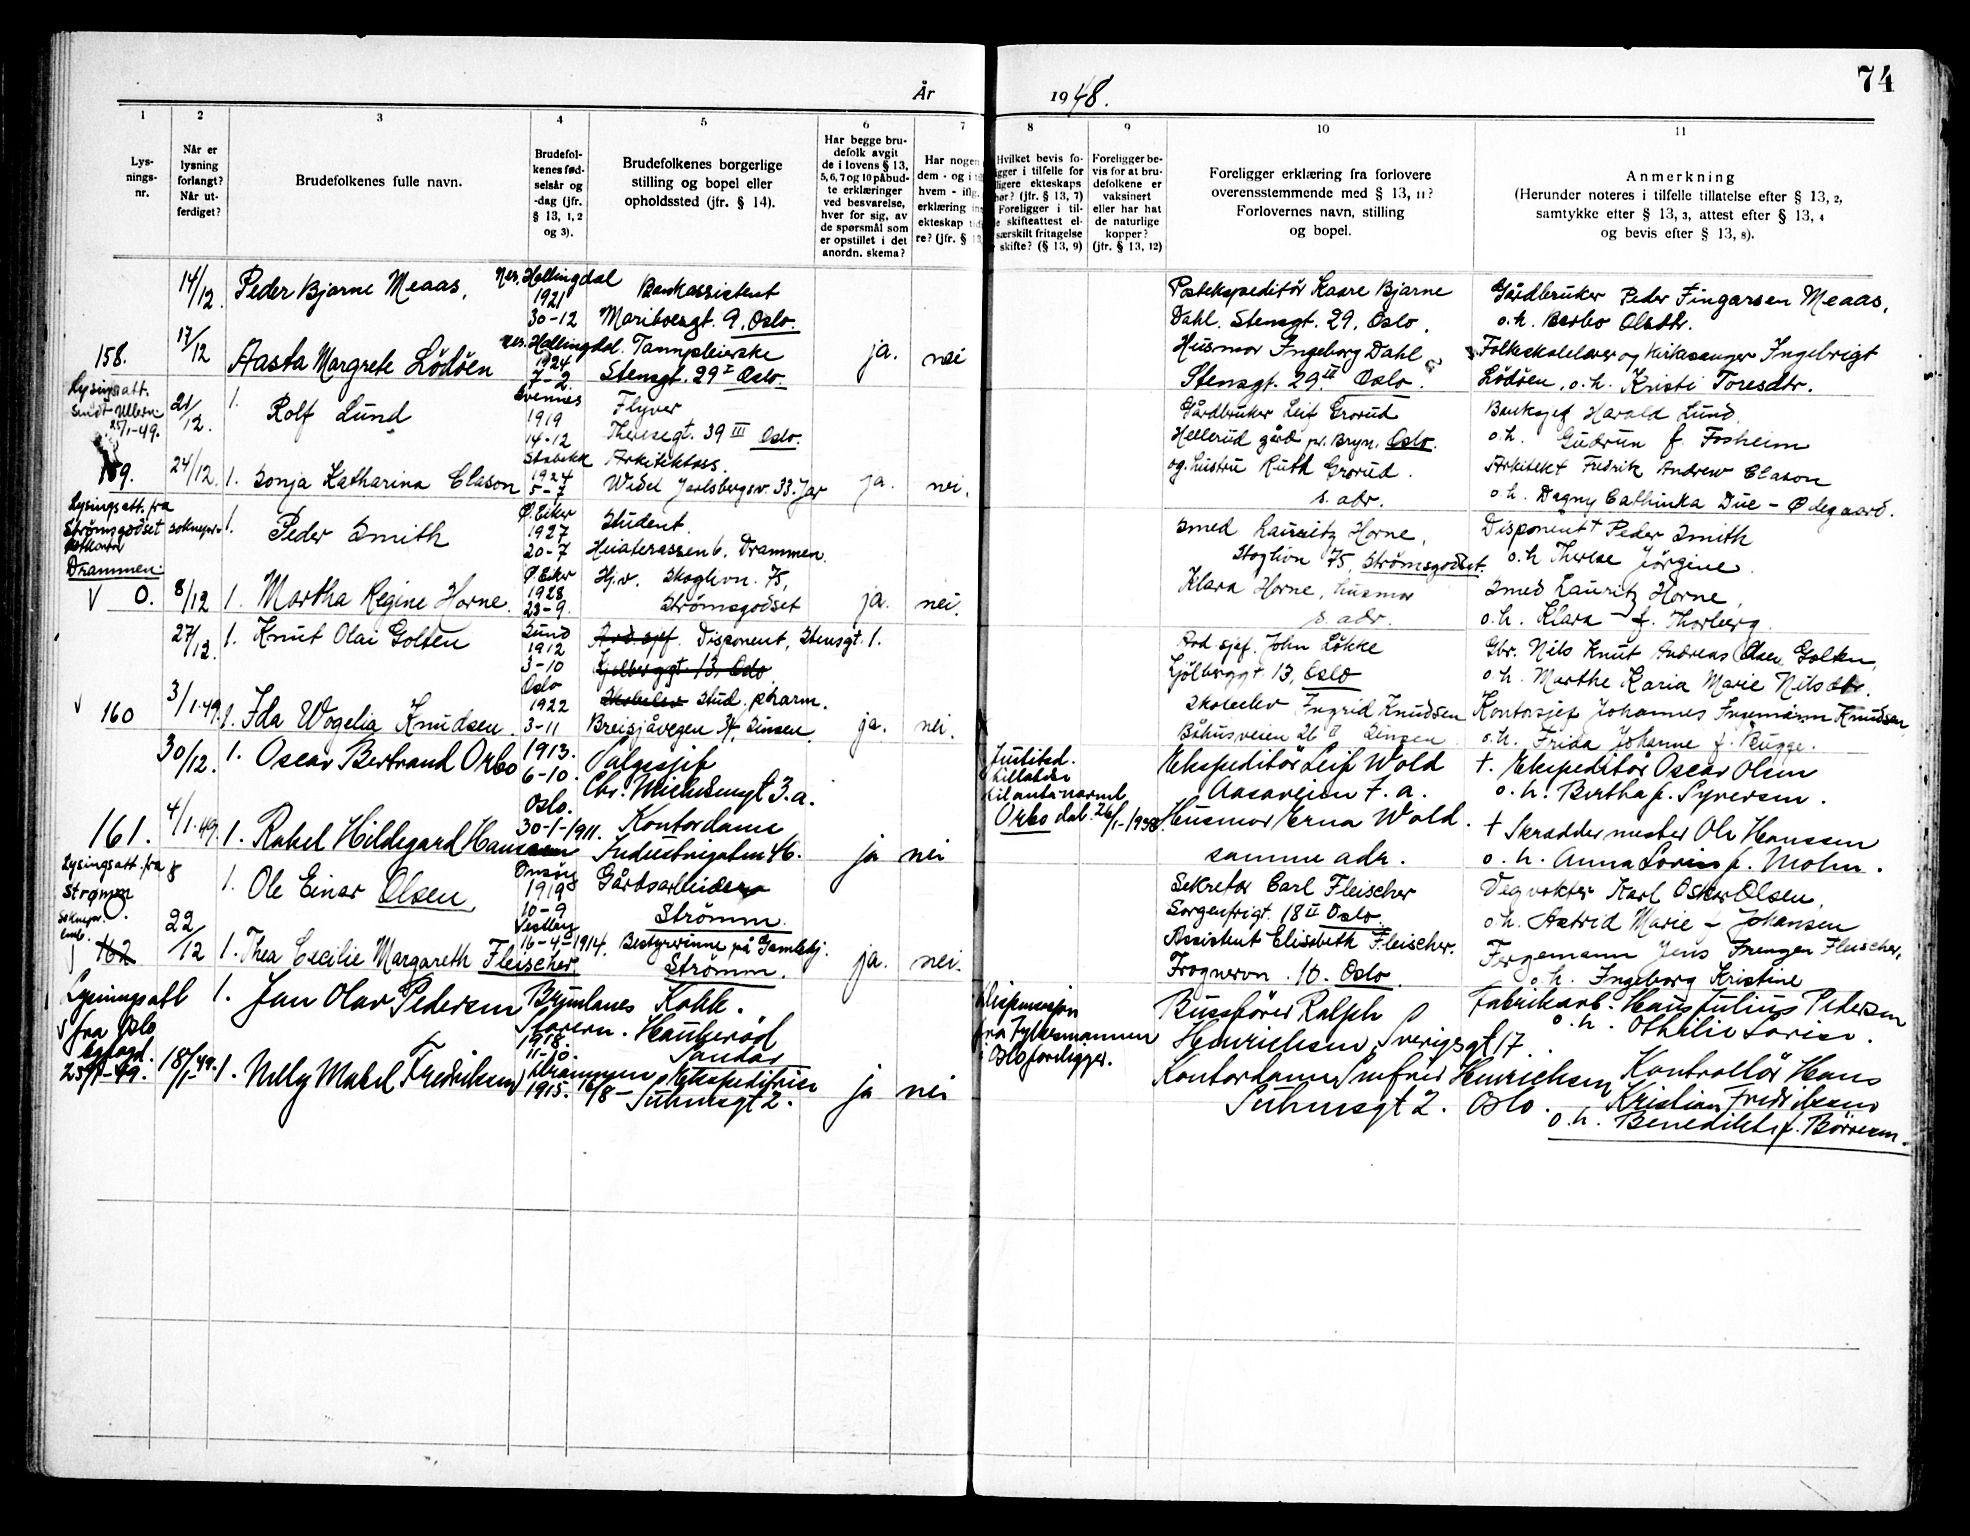 74
År 1948.
1 2 3 4 5 6 7 8 9 10 11
Lys-
nings-
nr.
Når er
lysning
forlangt?
Når ut-
ferdiget?
Brudefolkenes fulle navn.
Brudefol-
kenes fød-
selsår og
-dag (jfr.
§ 13, 1, 2
og 3).
Brudefolkenes borgerlige
stilling og bopel eller
opholdssted (jfr. § 14).
Har begge bru-
defolk avgit
de i lovens § 13,
5, 6, 7 og 10 påbud-
te erklæringer
ved besvarelse,
hver for sig, av
de spørsmål som
er opstillet i det
anordn. skema?
Har nogen
dem - og i
hvem - iflg.
erklæring
ekteskap
re? (jfr. §
Hvilket bevis fo-
ligger i tilfelle for
ligere ekteskaps
hør? (jfr. § 13, 7)
Foreligger i til-
e skifteattest el-
særskilt fritagelse
skifte? (§ 13, 9)
Foreligger be-
vis for at bru-
defolkene er
vaksinert
eller har hat
de naturlige
kopper?
(jfr. § 13, 12)
Foreligger erklæring fra forlovere
overensstemmende med § 13, 11?
Forlovernes navn, stilling
og bopel.
Anmerkning
(Herunder noteres i tilfelle tillatelse efter § 13, 2,
samtykke efter § 13, 3, attest efter § 13, 4
og bevis efter § 13, 8).
14/12 Peder Bjarne Meaas,
Nes, Hallingdal
1921
30-12
Bankassistent
Mariboesgt. 9, Oslo.
Postekspeditör Kaare Bjarne
Dahl. Stensgt. 29, Oslo.
Gårdbruker Peder Fingarsen Meaas,
o.h. Barbo Olsdtr.
158. 17/12 Aasta Margrete Lödöen
Nes. Hallingdal.
1924
7-2
Tannpleierske
Stensgt. 29 I Oslo.
ja. nei
Husmor Ingeborg Dahl
Stensgt. 29 II Oslo.
Folkeskolelærer og kirkesanger Ingebrigt
Lödöen, o.h. Kristi Toresdtr.
Lysingsatt.
sendt Ullern
25/1-49.
21/12. 1. Rolf Lund
1919
14-12
Flyver
Theresegt. 39 III Oslo.
Gårdbruker Leif Grorud
Hellerud gård pr. Bryn, Oslo.
Banksjef Harald Lund,
o.h. Gudrun f. Fosheim
159. 24/12. 1. Sonja Katharina Clason
Stabekk
1924
5-7
Arkitektass.
Wedel Jarlsbergsv. 33. Jar
ja. nei.
og hustru Ruth Grorud.
s. adr.
Arkitekt Fredrik Andrew Clason
o.h. Dagny Cathinka Due - Ødegaard.
Lysingsatt. fra
Strømsgodset
Drammen.
1. Peder Smith
Ø. Eiker
1927
20-7
Student.
6, Drammen
Smed Lauritz Horne,
Skoglivn 75, Strømsgodset.
Disponent Peder Smith
o.h. Therese Jörgine.
V 0. 8/12 1. Martha Regine Horne.
Ø. Eiker
1928
23-9.
Hj.v. Skoglivn. 75,
Strømsgodset
ja. nei.
Klara Horne, husmor
s. adr.
Smed Lauritz Horne,
o.h. Klara - f. Thorberg.
27/12. 1. Knut Olai Golten
Sund
1912
3-10
Avd sjef. Disponent, Stensgt. 1.
Gjölberggt. 13, Oslo
Avd. sjef. John Løkke
Gjölberggt. 13, Oslo
Gbr. Nils Knut Andreas Olsen Golten,
o.h. Marthe Karia Marie Nilsdtr.
V 160 3/1.49. 1. Ida Vogelia Knudsen.
Oslo
1922
3-11
Skoleelev stud. pharm.
Breisjåvegen 34, Linsen.
ja. nei.
Skoleelev Ingrid Knudsen
Båhusveien 26 II
Kontorsjef Johannes Ingemann Knudsen
o.h. Frida Johanne f. Bugge.
30/12. 1. Oscar Bertrand Orbo
1913.
6-10.
Oslo.
Salgssjef
Chr. Michelsensgt 3.a.
Justitsd.
tillatelse
til anta navnet
Orbo dat. 26/1-1938.
Ekspeditör Leif Wold
Aasaveien 7. a.
† Ekspeditör Oscar Olsen
o. h. Bertha f. Syversen.
161. 4/1.49. 1. Rakel Hildegard Hanssen
30-1-1911.
Kontordame
Industrigaten 46.
ja nei
Husmor Erna Wold.
samme adr.
† Skreddermester Ole Hanssen
o. h. Anna Lovise f. Mohn.
Lysingsatt. fra
Strømm
1. Ole Einar Olsen,
Onsøy
1919
10-9
Gårdsarbeider
Strömm.
Sekretær Carl Fleischer
Sorgenfrigt. 18 II Oslo.
Vegvokter Karl Oskar Olsen,
o.h. Astrid Marie f Johansen
162 22/12 1. Thea Cecilie Margareth Fleischer
Vestby
16-4-1914.
Bestyrerinne på Gamlehj.
Strömm.
ja. nei.
Assistent Elisabeth Fleischer.
Frognervn. 10. Oslo.
Fergemann Jens Frenger Fleischer,
o.h. Ingeborg Kristine
Lysningsatt
V fra Oslo
byfogd.
25/1-49.
1. Jan Olav Pedersen
Brunlanes
Stavern.
1918.
11-10.
Kokk.
Haukeröd
Sandar
Dispensasjon
fra Fylkesmannen
i Oslo foreligger.
Bussförer Ralph
Henrichsen, Sverigsgt 17.
Fabrikarb. Hans Julius Pedersen
o. h. Othilie Lovise.
18/1-49. 1. Nelly Mabel Fredriksen
Drammen
1915. 16/8-
Ekspeditrise
Suhmsgt 2.
ja nei
Kontordame Synfrid Henrichsen
Suhmsgt 2. Oslo.
Kontrollör Hans
Kristian Fredriksen
o. h. Benedikte f. Börresen.